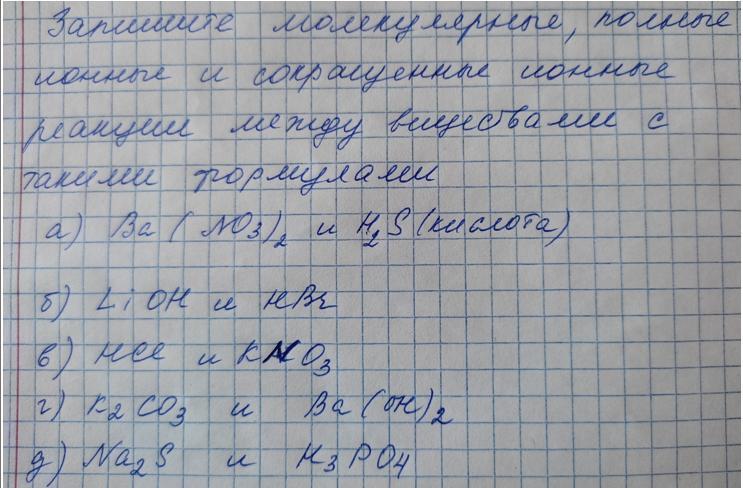 Запишите молекулярные, полные
ионные и сокращенные ионные
реакции между веществами с
такими формулами
а) Ba(NO3)2 и H2S (кислота)
б) LiOH и HBr
в) HCl и KNO3
г) K2CO3 и Ba(OH)2
д) Na2S и H3PO4